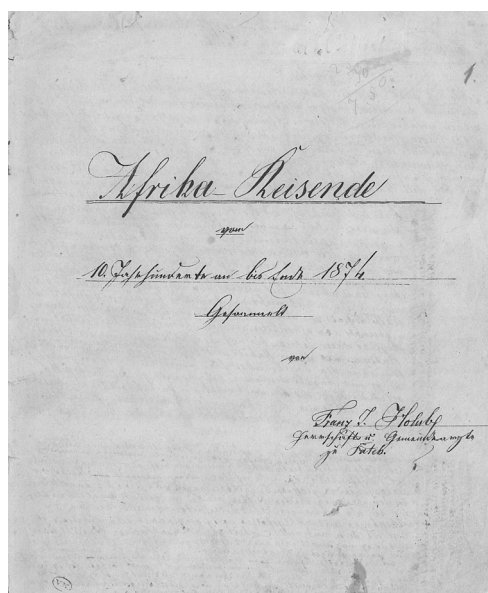 1.
Afrika-Reisende
vom
10. Jahrhunderte an bis Ende 1874.
Gesammelt
von
Franz J. Holub
Herrschafts u. Gemeindearzte
zu